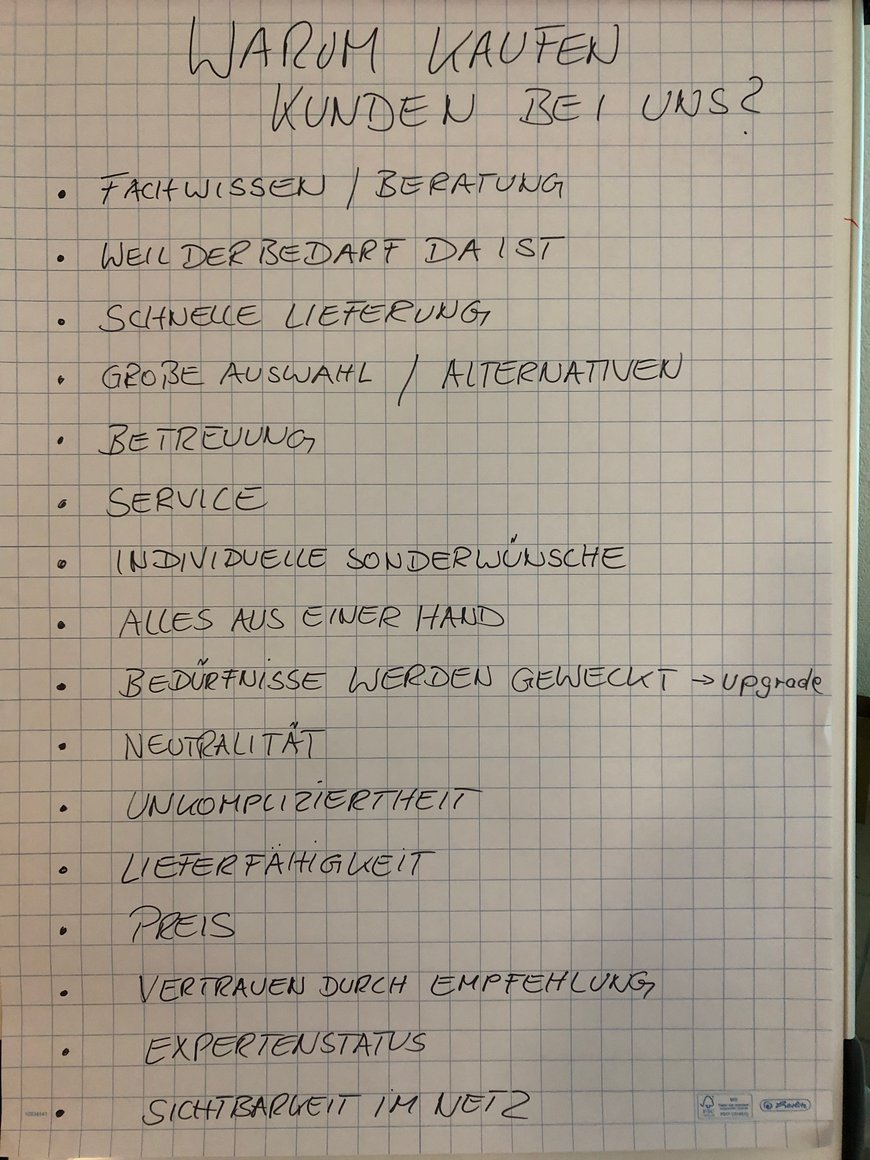 WARUM KAUFEN
KUNDEN BEI UNS?
• FACHWISSEN / BERATUNG
• WEIL DER BEDARF DA IST
• SCHNELLE LIEFERUNG
• GROßE AUSWAHL / ALTERNATIVEN
• BETREUUNG
• SERVICE
• INDIVIDUELLE SONDERWÜNSCHE
• ALLES AUS EINER HAND
• BEDÜRFNISSE WERDEN GEWECKT → upgrade
• NEUTRALITÄT
• UNKOMPLIZIERTHEIT
• LIEFERFÄHIGKEIT
• PREIS
• VERTRAUEN DURCH EMPFEHLUNG
• EXPERTENSTATUS
• SICHTBARKEIT IM NETZ